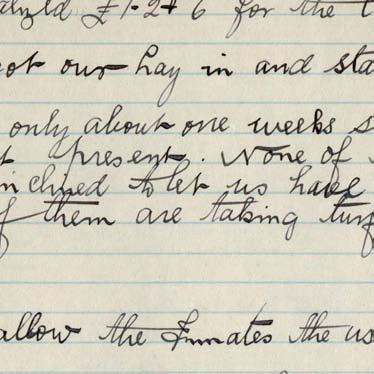 £1-2-6 for the t
ot our hay in and sta
only about one weeks s
t present. None of
inclined to let us have
f them are taking turf
allow the Inmates the us